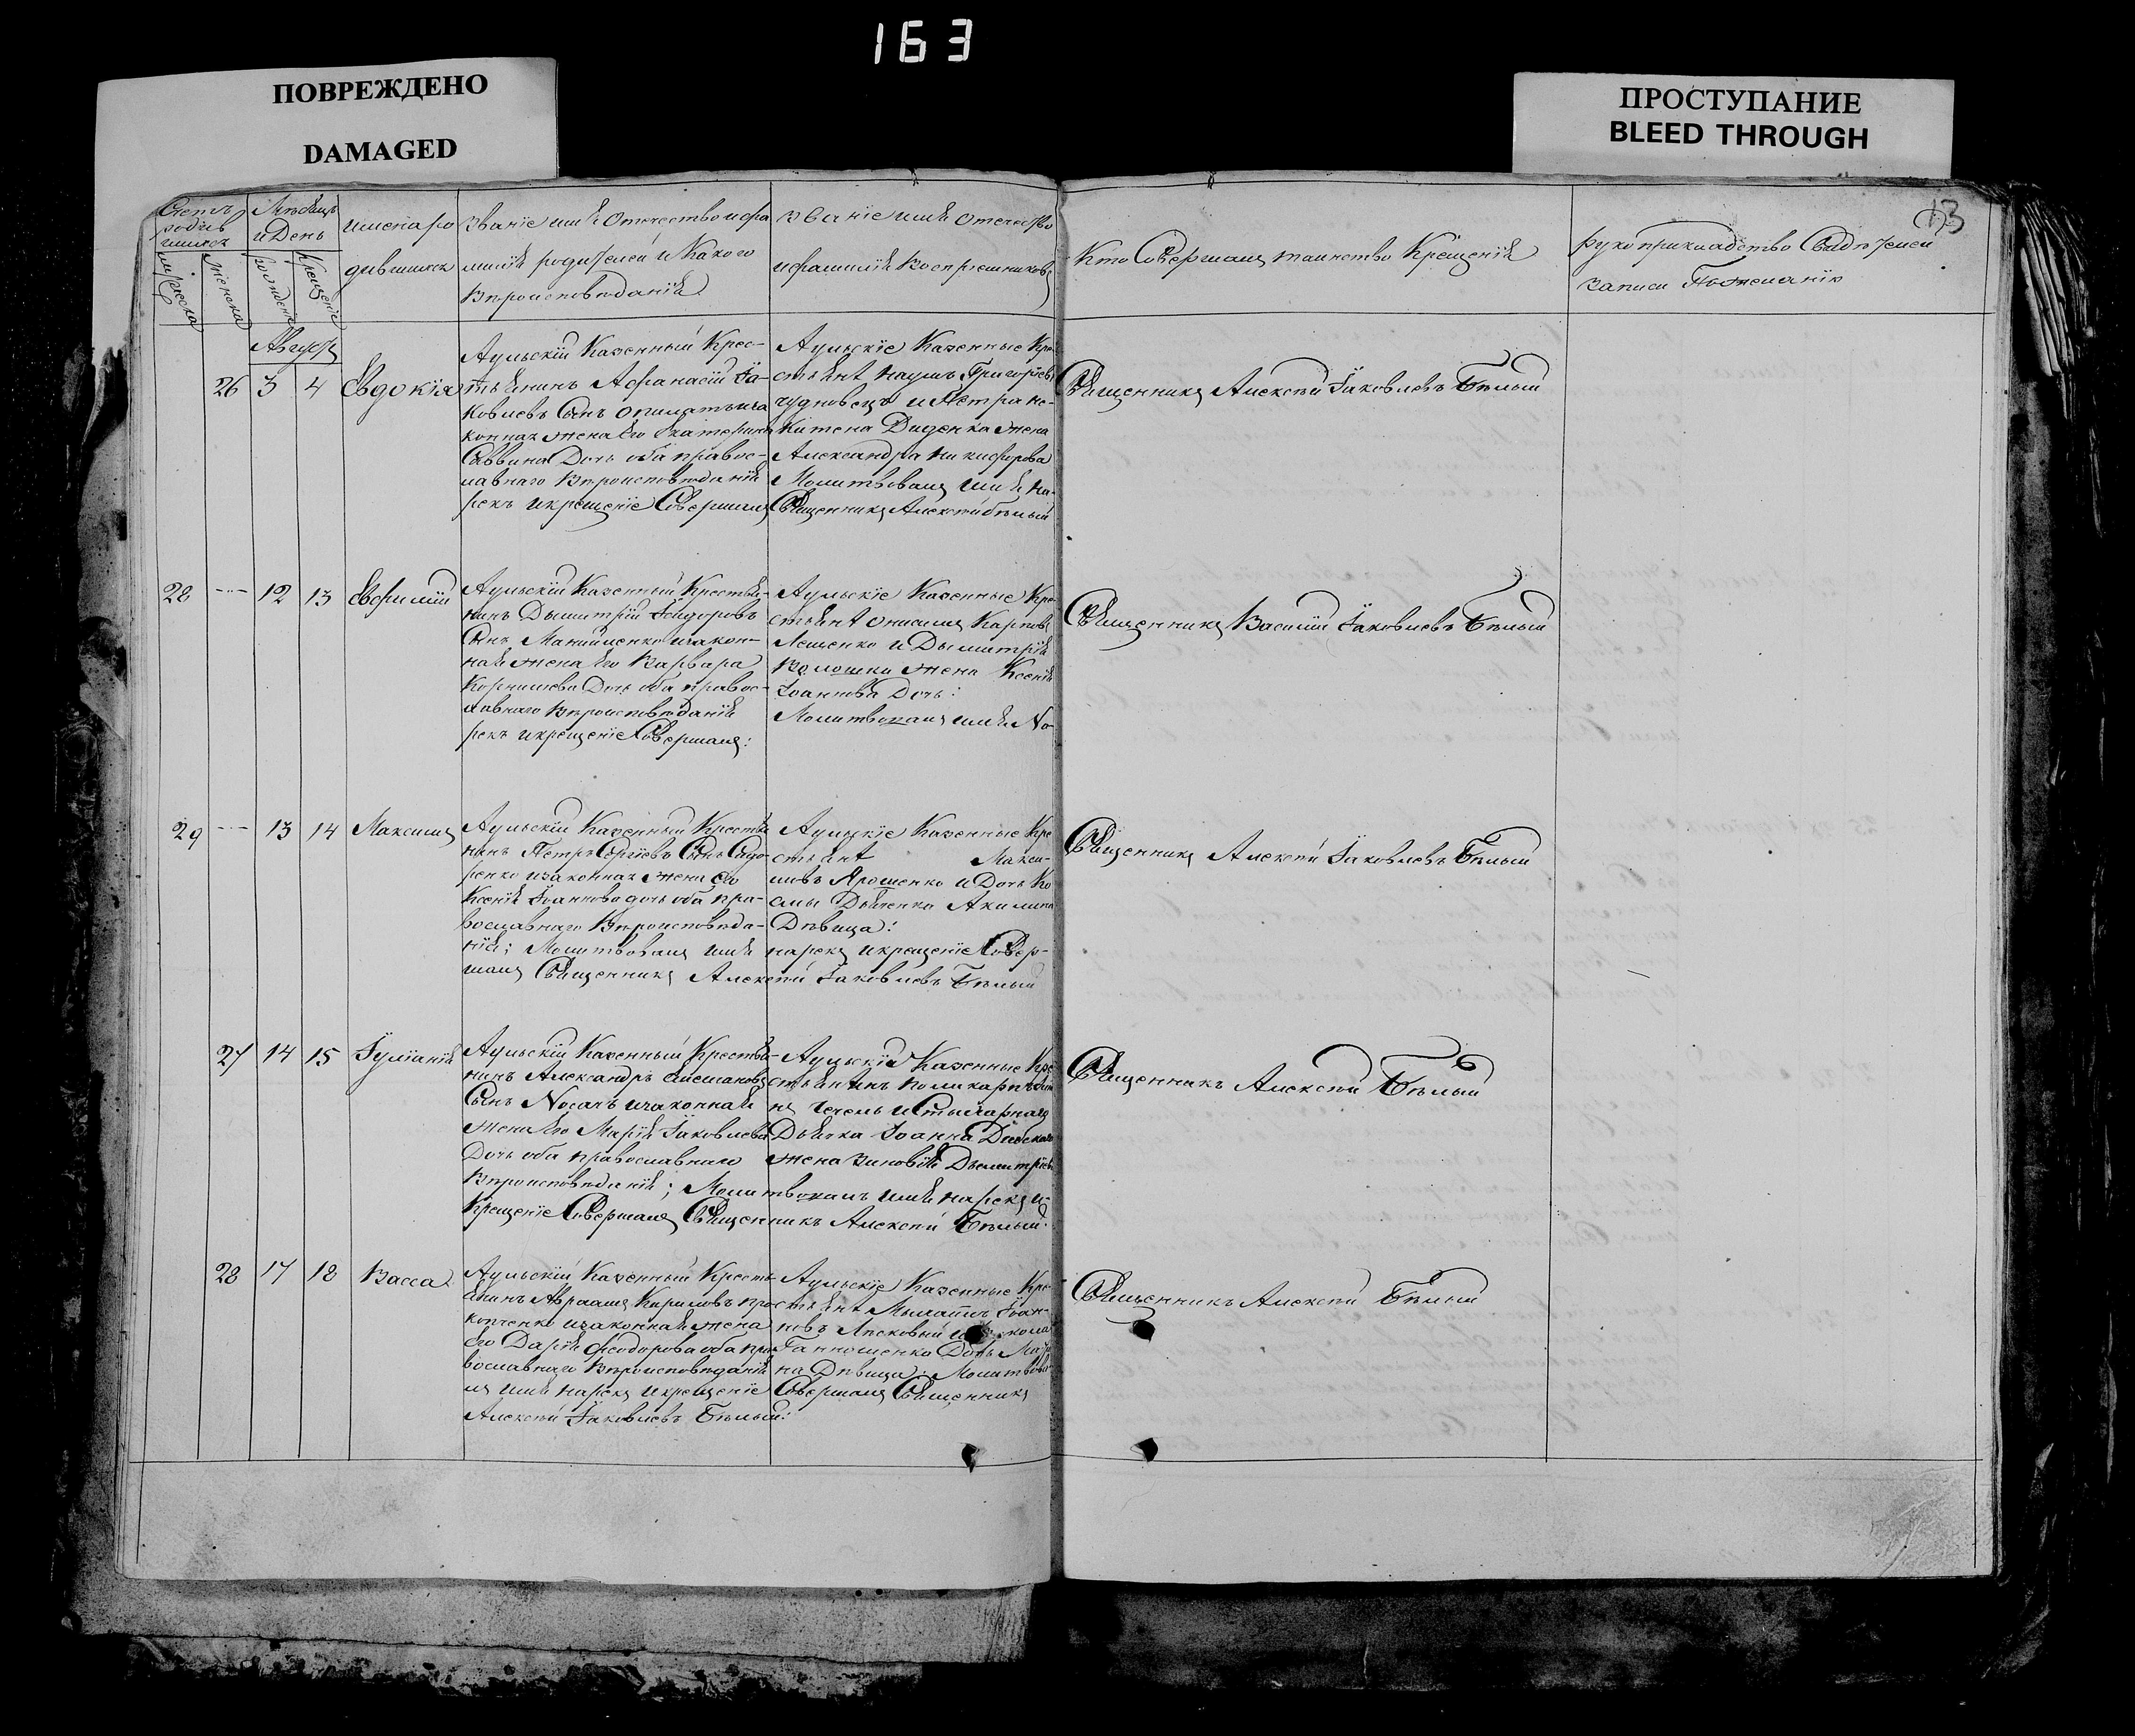 163
ПОВРЕЖДЕНО
DAMAGED
ПРОСТУПАНИЕ
BLEED THROUGH
13
Счетъ
родив
шихся
Мѣсяцъ
и День
мужеска
женска
рожденія
Крещеніе
имена ро
дившихся
Званіе имя отечество и фа
милія родителей и Какого
Вѣроисповѣданія
Званіе имя отечество
и фамилія Воспріемниковъ
Кто Совершалъ таинство Крещенія
рукоприкладство Свидѣтелей
записи По желанію
Августъ
26 3 4 Евдокія
Аульскій Казенный Крес-
тьянинъ Афанасій Іа-
ковлевъ Сынъ
конная жена Его Екатерина
Саввина Дочь оба правос-
лавнаго Вѣроисповѣданія
рекъ и крещеніе Совершилъ
Аульскіе Казенные Кре
стьяне Наумъ Григорьевъ
чудновецъ и Петра Ни-
китена Диденка жена
Александра Никифорова
Молитвовалъ имя На-
Священникъ Алексѣй бѣлый
Священникъ Алексѣй Іаковлевъ Бѣлый
28 --- 12 13 Евфимій
Аульскій Казенный Крестья-
нинъ Дымитрій Ісидоровъ
Сынъ Манийленко изакон-
ная жена Его Варвара
Корнилева Дочь оба правос-
лавнаго Вѣроисповѣданія
рекъ и крещеніе Совершалъ:
Аульскіе Казенные Кре
стьяне Карповъ
Лещенко и Дымитрія
Волошки жена Ксенія
Іоаннова Дочь:
Молитвовалъ имя На-
Священникъ Василій Іаковлевъ Бѣлый
29 --- 13 14 Максимъ
Аульскій Казенный Крестья
нинъ Петръ Сергіевъ Сынъ Сидо-
ренко изаконная жена его
Ксенія Іоаннова дочь оба пра-
вославнаго Вѣроисповѣда-
нія; Молитвовалъ имя
шалъ Священникъ
Аульскіе Казенные Кре
стьяне Макси-
мъ Ярошенко и Дочь Ко
смы Дьяченко Акилина
Дѣвица:
нарекъ и крещеніе Совер-
Алексѣй Іаковлевъ Бѣлый
Священникъ Алексѣй Іаковлевъ Бѣлый
27 14 15 Іуліанія
Аульскій Казенный Крестья-
нинъ Александръ
Сынъ Носачъ изаконная
жена Его Марія Іаковлева
Дочь оба православнаго
Вѣроисповѣданія; Молитвовалъ имя нарекъ и
Крещеніе Совершалъ Священникъ Алексѣй Бѣлый.
Аульскіе Казенные Кре
стьянинъ Поликарпъ
Дьячка Іоанна
жена Зиновія Дымитріева
Священникъ Алексѣй Бѣлый
28 17 18 Васса
Аульскій Казенный Кресть
янинъ Авраамъ Кириловъ Про
копченко изаконная жена
Его Дарія Феодорова оба пра
вославнаго Вѣроисповѣданія
лъ имя нарекъ и крещеніе
Алексѣй Іаковлевъ Бѣлый:
Аульскіе Казенные Кре
стьяне Іоан-
новъ Лясковый
Дочь
на Дѣвица; Молитвова
Совершалъ Священникъ
Священникъ Алексѣй Бѣлый